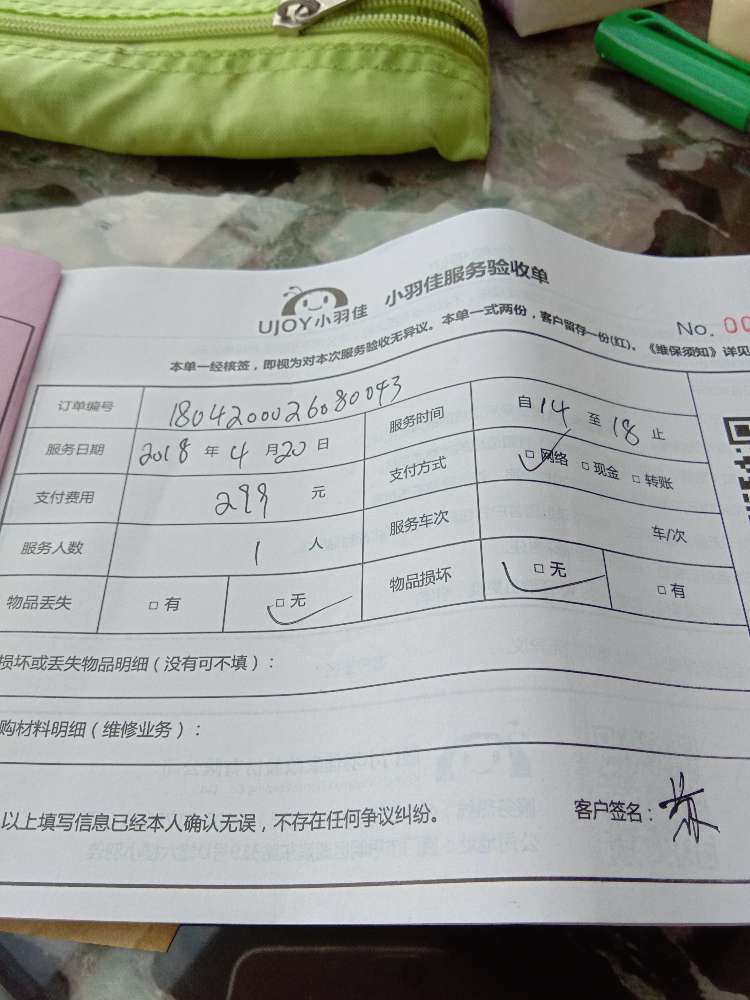 UJOY小羽佳 小羽佳服务验收单
No. 00
本单一经核签，即视为对本次服务验收无异议。本单一式两份，客户留存一份(红)。《维保须知》详见
订单编号 1804200026080043 服务时间 自 14 至 18 止
服务日期 2018 年 4 月 20 日 支付方式 □ 网络 □ 现金 □ 转账
支付费用 299 元
服务人数 1 人 服务车次 车/次
物品丢失 □ 有 □ 无 物品损坏 □ 无 □ 有
损坏或丢失物品明细（没有可不填）：
购材料明细（维修业务）：
以上填写信息已经本人确认无误，不存在任何争议纠纷。 客户签名：